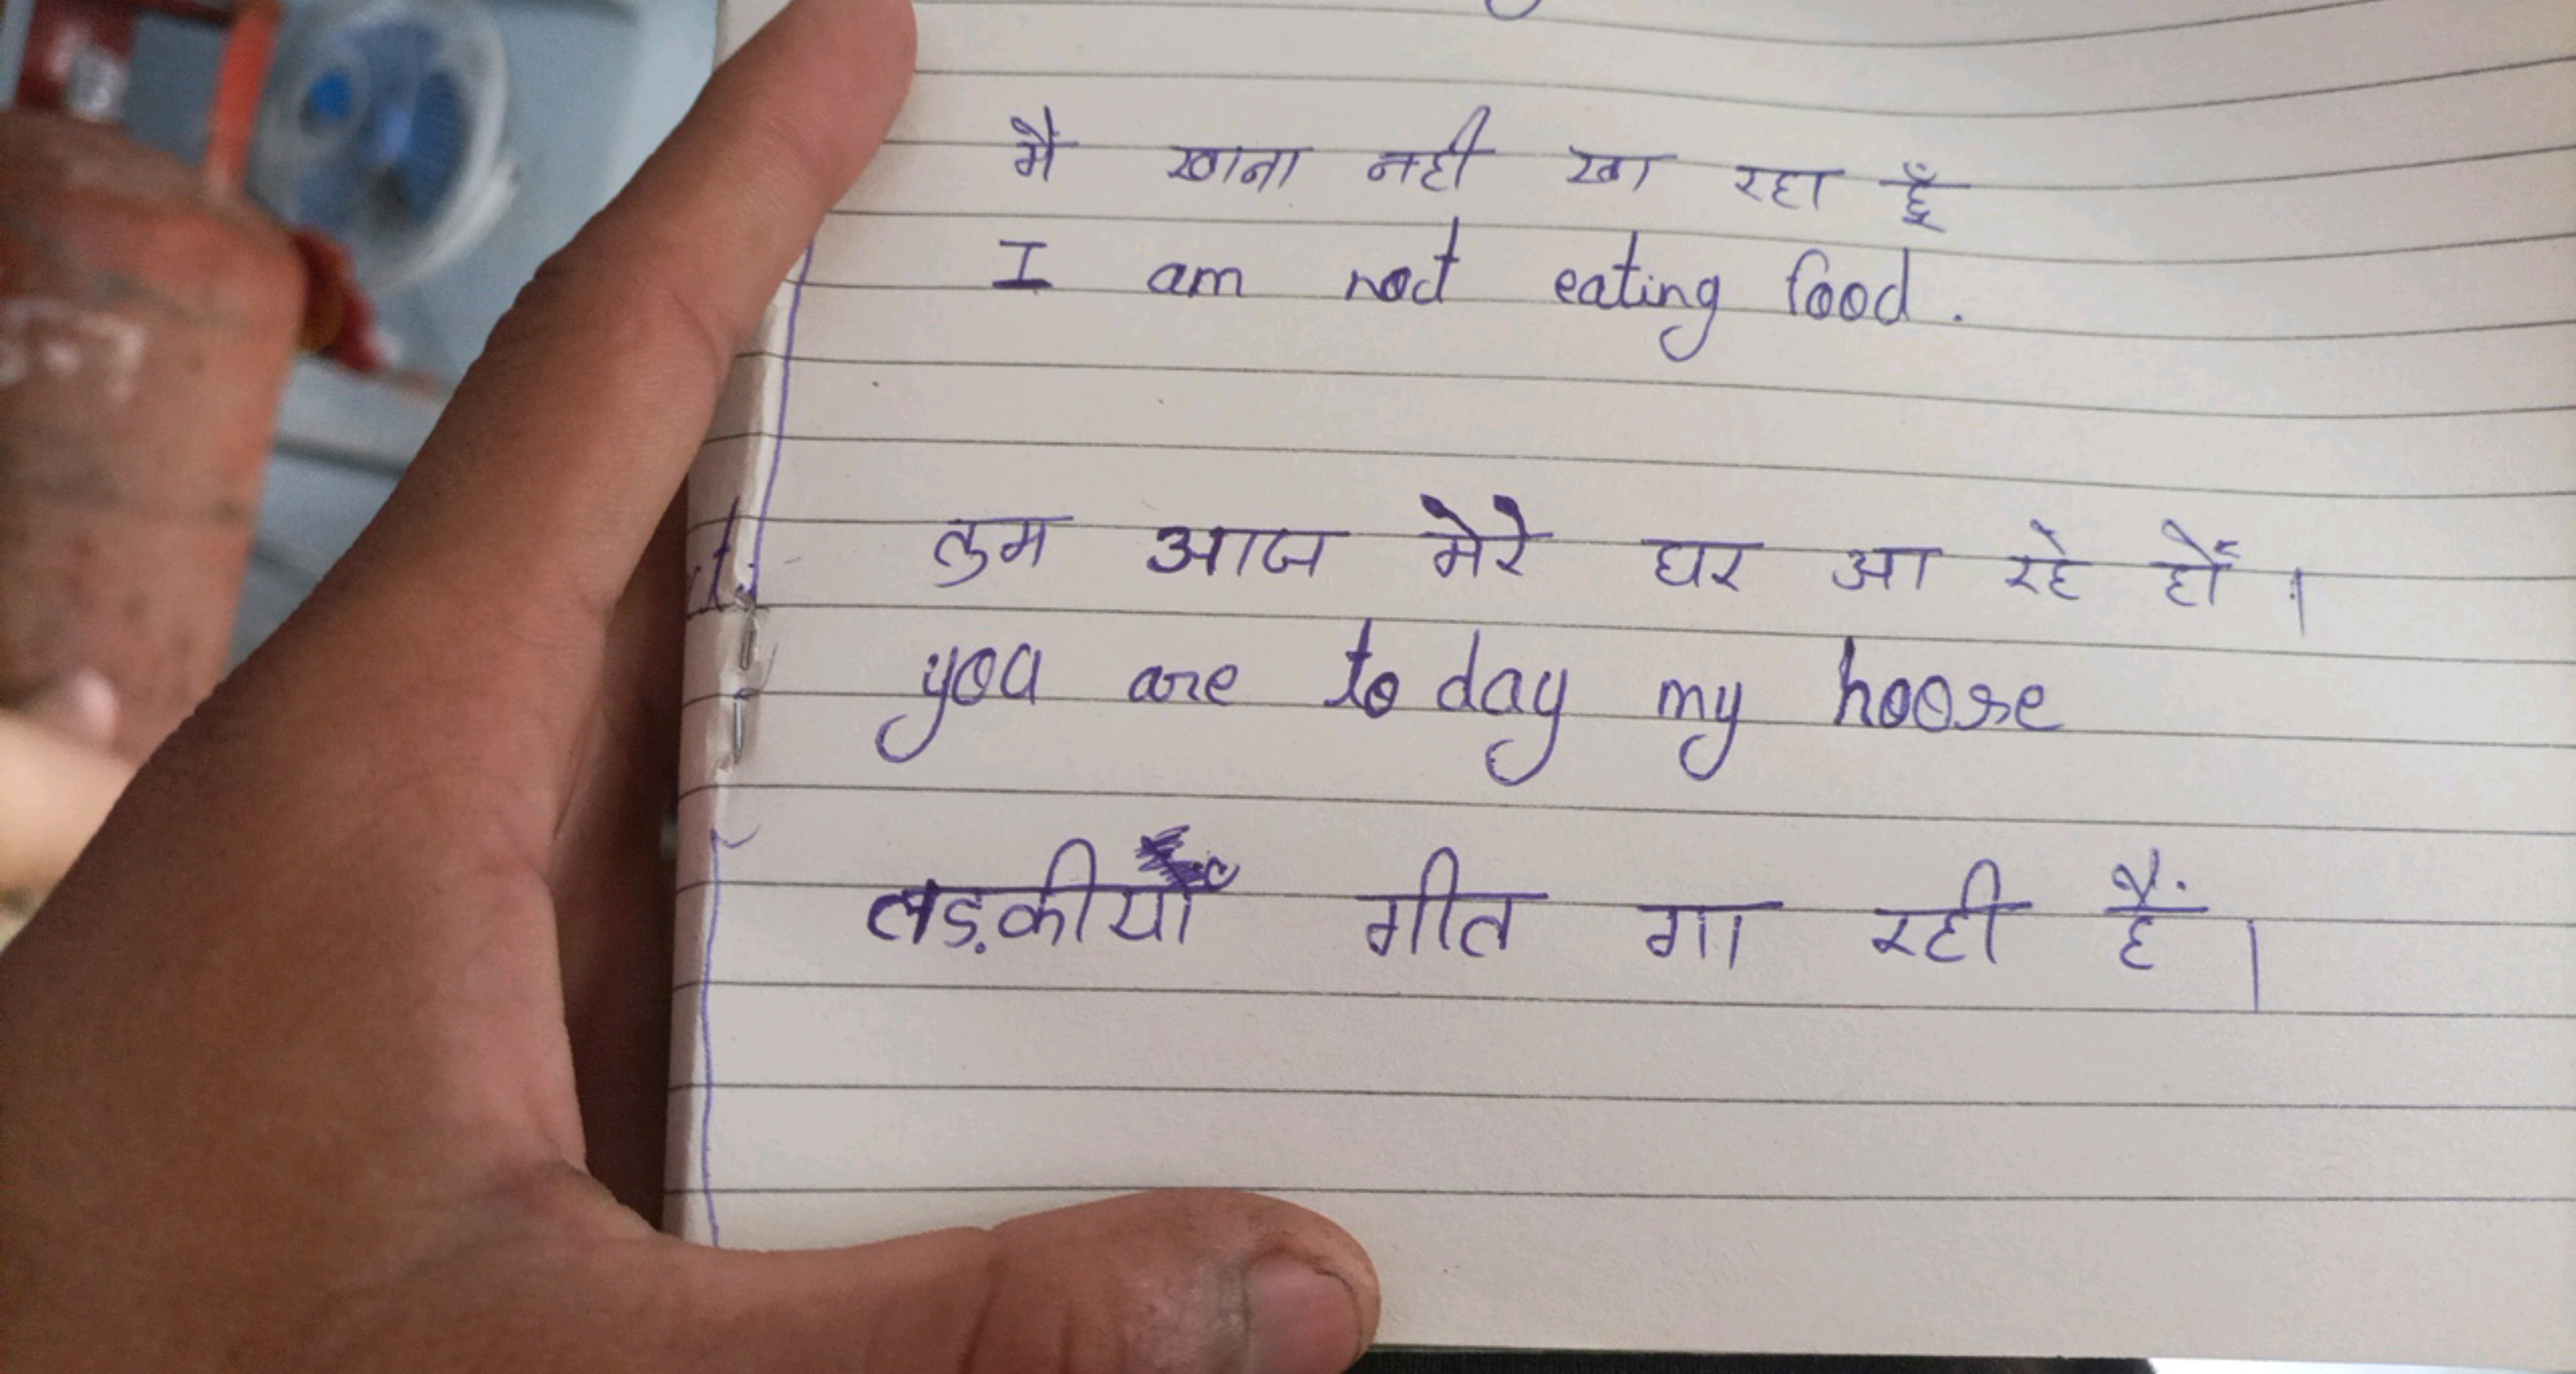 मैं खाना नही खा रहा हूँ
I am not eating food.
तुम आज मेरे घर आ रहे हों ।
you are to day my hoose
लड़कीयाँ गीत गा रही हैं ।